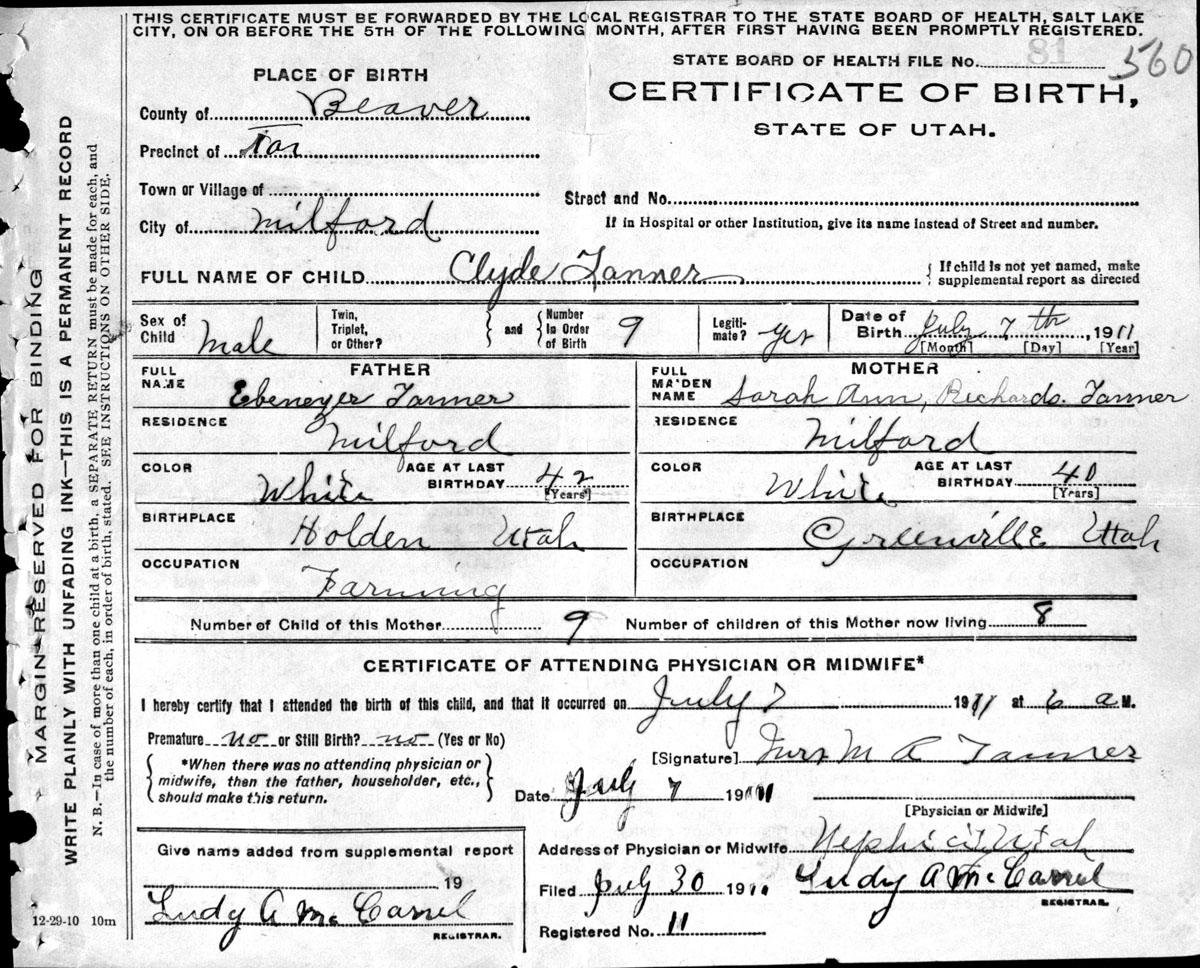 THIS CERTIFICATE MUST BE FORWARDED BY THE LOCAL REGISTRAR TO THE STATE BOARD OF HEALTH, SALT LAKE
CITY, ON OR BEFORE THE 5TH OF THE FOLLOWING MONTH, AFTER FIRST HAVING BEEN PROMPTLY REGISTERED.
STATE BOARD OF HEALTH FILE No. 81 560
PLACE OF BIRTH
CERTIFICATE OF BIRTH,
STATE OF UTAH.
County of Beaver
Precinct of
Town or Village of
Street and No.
City of Milford
If in Hospital or other Institution, give its name instead of Street and number.
FULL NAME OF CHILD Clyde Tanner
{ If child is not yet named, make
supplemental report as directed
Sex of Child Male
Twin, Triplet, or Other? } and { Number In Order of Birth 9
Legitimate? yes
Date of Birth July 7th 1911
[Month] [Day] [Year]
FATHER
FULL NAME Ebeneyer Tanner
RESIDENCE Milford
COLOR White AGE AT LAST BIRTHDAY 42 [Years]
BIRTHPLACE Holden Utah
OCCUPATION Farming
MOTHER
FULL MAIDEN NAME Sarah Ann, Richards. Tanner
RESIDENCE Milford
COLOR White AGE AT LAST BIRTHDAY 40 [Years]
BIRTHPLACE Greenville Utah
OCCUPATION
Number of Child of this Mother 9 Number of children of this Mother now living 8
CERTIFICATE OF ATTENDING PHYSICIAN OR MIDWIFE*
I hereby certify that I attended the birth of this child, and that it occurred on July 7 1911 at 6 a M.
Premature no or Still Birth? no (Yes or No)
*When there was no attending physician or
midwife, then the father, householder, etc.,
should make this return.
[Signature] Mrs M A Tanner
Date July 7 1911
[Physician or Midwife]
Address of Physician or Midwife Nephi Utah
Filed July 30 1911 Ludy A McCarrel
REGISTRAR.
Registered No. 11
Give name added from supplemental report
19
Ludy A Mc Carrel
REGISTRAR.
12-29-10 10m
MARGIN RESERVED FOR BINDING
WRITE PLAINLY WITH UNFADING INK—THIS IS A PERMANENT RECORD
N. B.—In case of more than one child at a birth, a SEPARATE RETURN must be made for each, and
the number of each, in order of birth, stated. SEE INSTRUCTIONS ON OTHER SIDE.